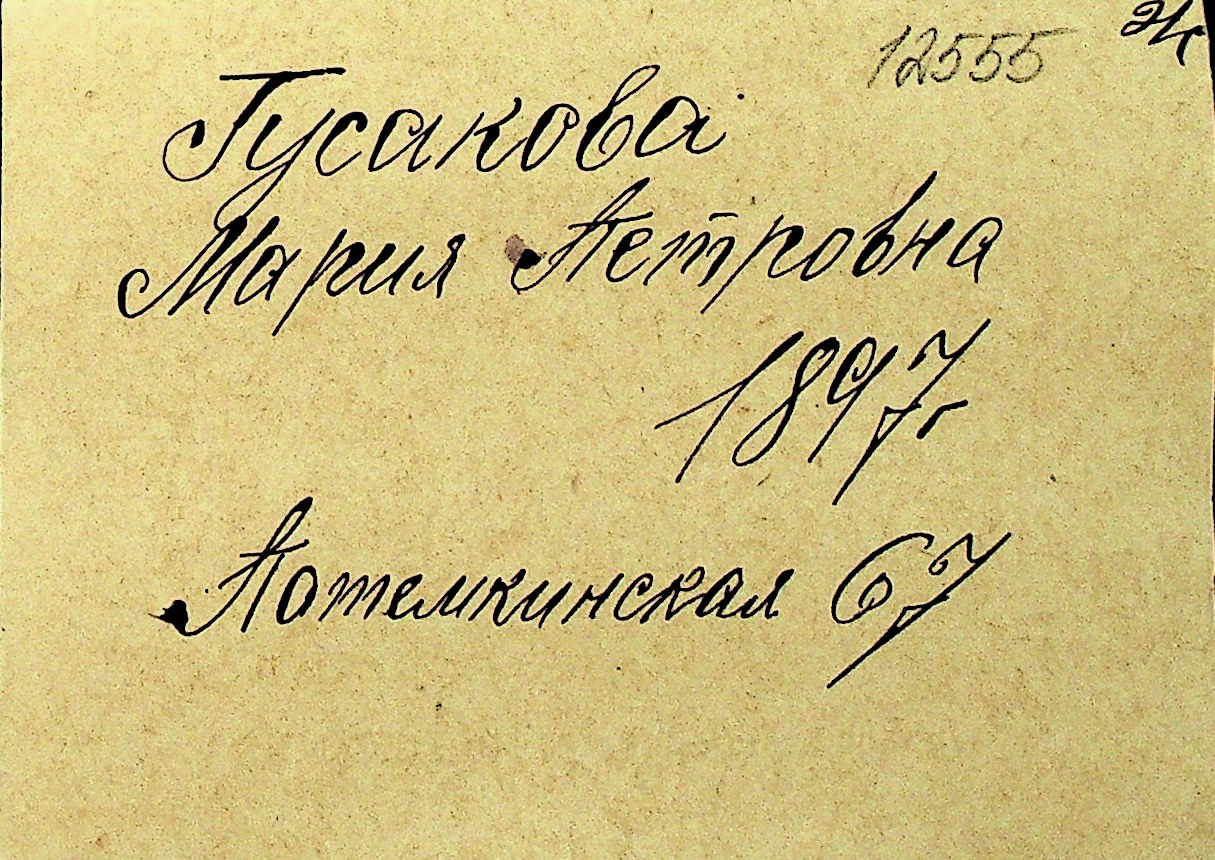 12555
Гусакова
Мария Петровна
1897г
Потемкинская 67